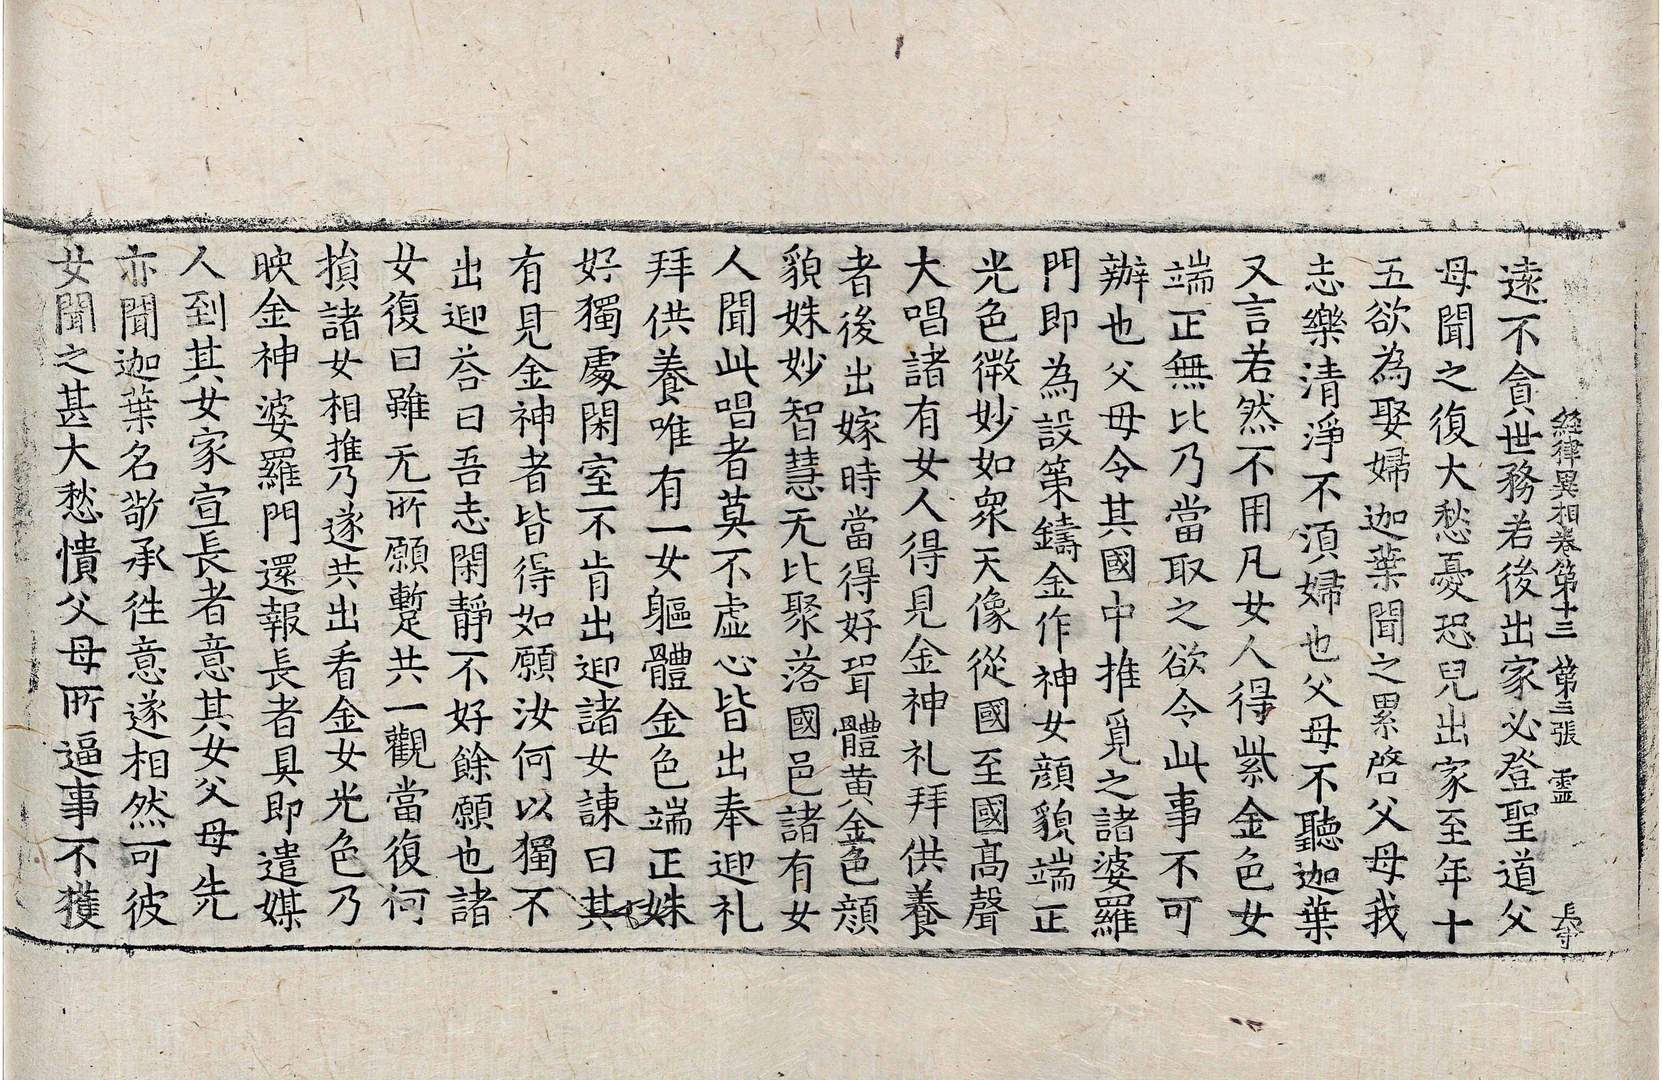 經律異相卷第十三 第三張 靈 長守
遠不貪世務若後出家必登聖道父
母聞之復大愁憂恐兒出家至年十
五欲為娶婦迦葉聞之累啓父母我
志樂清淨不須婦也父母不聽迦葉
又言若然不用凡女人得紫金色女
端正無比乃當取之欲令此事不可
辦也父母令其國中推覓之諸婆羅
門即為設策鑄金作神女顏貌端正
光色微妙如衆天像從國至國高聲
大唱諸有女人得見金神礼拜供養
者後出嫁時當得好壻體黄金色顔
貌姝妙智慧无比聚落國邑諸有女
人聞此唱者莫不虛心皆出奉迎礼
拜供養唯有一女軀體金色端正姝
好獨處閑室不肯出迎諸女諫曰其
有見金神者皆得如願汝何以獨不
出迎荅曰吾志閑靜不好餘願也諸
女復曰雖无所願暫共一觀當復何
損諸女相推乃遂共出看金女光色乃
映金神婆羅門還報長者具即遣媒
人到其女家宣長者意其女父母先
亦聞迦葉名敬承往意遂相然可彼
女聞之甚大愁憒父母所逼事不獲